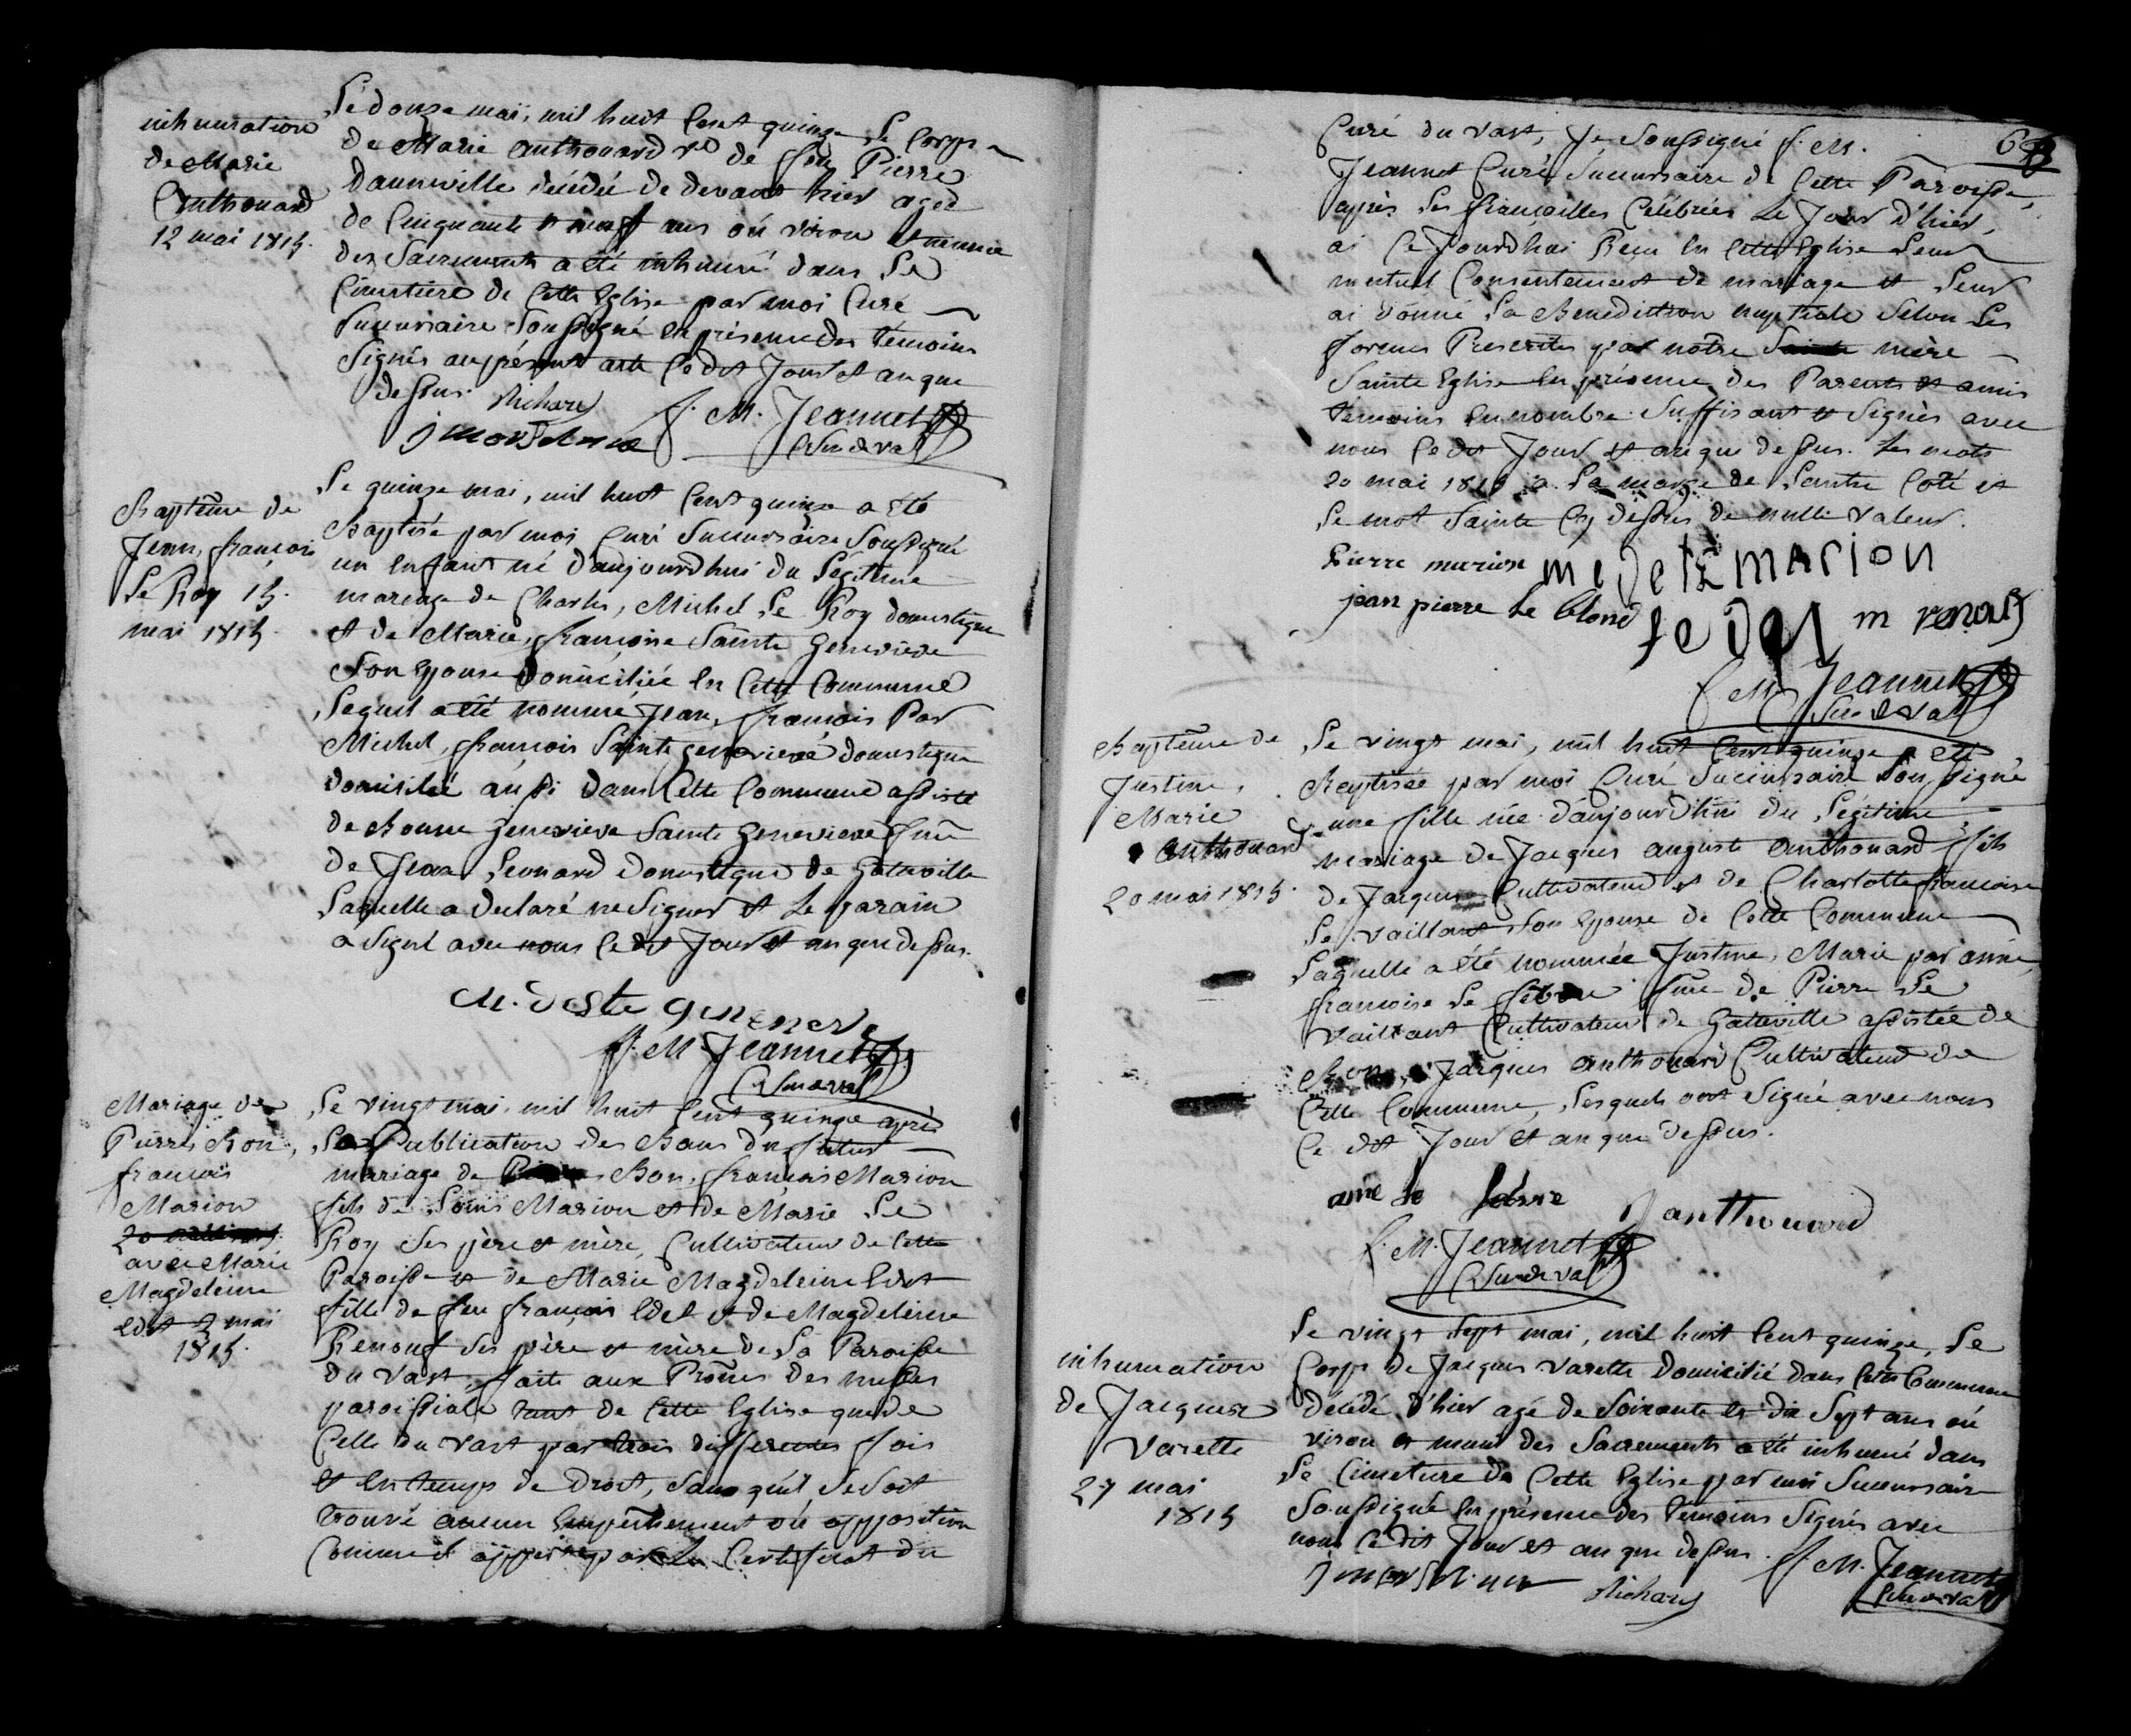 inhumation
de Marie
Anthouard
12 mai 1815.
Le douze mai, mil huit Cent quinze, Le Corps
de Marie anthouard vve de feu Pierre
dauneville décédée de devant hier agée
de Cinquante et neuf ans où viron et munie
des Sacrements a été inhumé dans Le
Cimetiere de Cette Eglise par moi Curé
Succursaire Soussigné En présence des témoins
Signés au présent acte Ce dit Jour et an que
dessus. Richard
f. M. Jeannet
Baptême de
Jean, françois
Le Roy 15.
mai 1815.
Le quinze mai, mil huit Cent quinze a Eté
Baptisé par moi Curé Succursaire Soussigné
un Enfant né d'aujourdhui du Légitime
mariage de Charles, Michel Le Roy domestique
et de Marie, françoise Sainte Genevieve
Son Epouse domiciliée En Cette Commune
Lequel a été nommé Jean, françois Par
Michel, francois Sainte genevieve domestique
domicilié aussi dans Cette Commune assisté
de Bonne Genevieve Sainte Genevieve fme
de Jean Leonard domestique de Gatteville
Laquelle a declaré ne Signer et Le parain
a Signé avec nous Ce dit Jour et an que dessus.
M. de ste genenev
f. M. Jeannet
Mariage de
Pierre, Bon,
francois
Marion
avec Marie
Magdeleine
Edet mai
1815.
Le vingt mai, mil huit Cent quinze après
La Publication des Bans du futur
mariage de Bon, françois Marion
fils de Louis Marion et de Marie Le
Roy Ses père et mère, Cultivateur de Cette
Paroisse et de Marie Magdeleine Edet
fille de feu francois Edet et de Magdeleine
Renouf Ses père et mère de La Paroisse
du Vast, faite aux Prônes des messes
paroissiale tant de Cette Eglise que de
Celle du Vast par trois differentes fois
et En temps de Droit, Sans qu'il Se Soit
trouvé aucun Empêchement où opposition
Comme il appert par Le Certificat du
6
Curé du Vast, Je Soussigné f. M.
Jeannet Curé Succursaire de Cette Paroisse,
après Les fiançailles Célébrées Le Jour d'hier,
ai Ce Jourdhui Reçu En Cette Eglise Leur
mutuel Consentement de mariage et Leur
ai donné La Benediction nuptiale Selon Les
formes Prescrites par notre Sainte mère
Sainte Eglise En présence des Parents et amis
témoins En nombre Suffisant et Signés avec
nous Ce dit Jour et an que dessus. Les mots
20 mai 1815 a La marge de L'autre Coté et
Le mot Sainte Cy dessus de nulle Valeur.
Pierre marion m edet E marion
jean pierre Le blond m renouf
f. M. Jeannet
Baptême de
Justine,
Marie
Anthouard
20 mai 1815.
Le vingt mai, mil huit Cent quinze a été
Baptisée par moi Curé Succursaire Soussigné
une fille née d'aujourdhui du Légitime
mariage de Jacques auguste Anthouard fils
de Jacques Cultivateur et de Charlotte francoise
Le Vaillant Son Epouse de Cette Commune
Laquelle a été nommée Justine, Marie par anne
francoise Le febvre fme de Pierre Le
Vaillant Cultivateur de Gatteville assistée de
Jacques Anthouard Cultivateur de
Cette Commune, Lesquels ont Signé avec nous
Ce dit Jour et an que dessus.
anne le febvre J anthouard
f. M. Jeannet
inhumation
de Jacques
Varette
27 mai
1815
Le vingt Sept mai, mil huit Cent quinze, Le
Corps de Jacques Varette domicilié dans Cette Commune
décédé d'hier agé de Soixante et dix Sept ans où
viron et muni des Sacrements a été inhumé dans
Le Cimetiere de Cette Eglise par moi Succursaire
Soussigné En présence des témoins Signés avec
nous Ce dit Jour et an que dessus. f. M. Jeannet
Richard